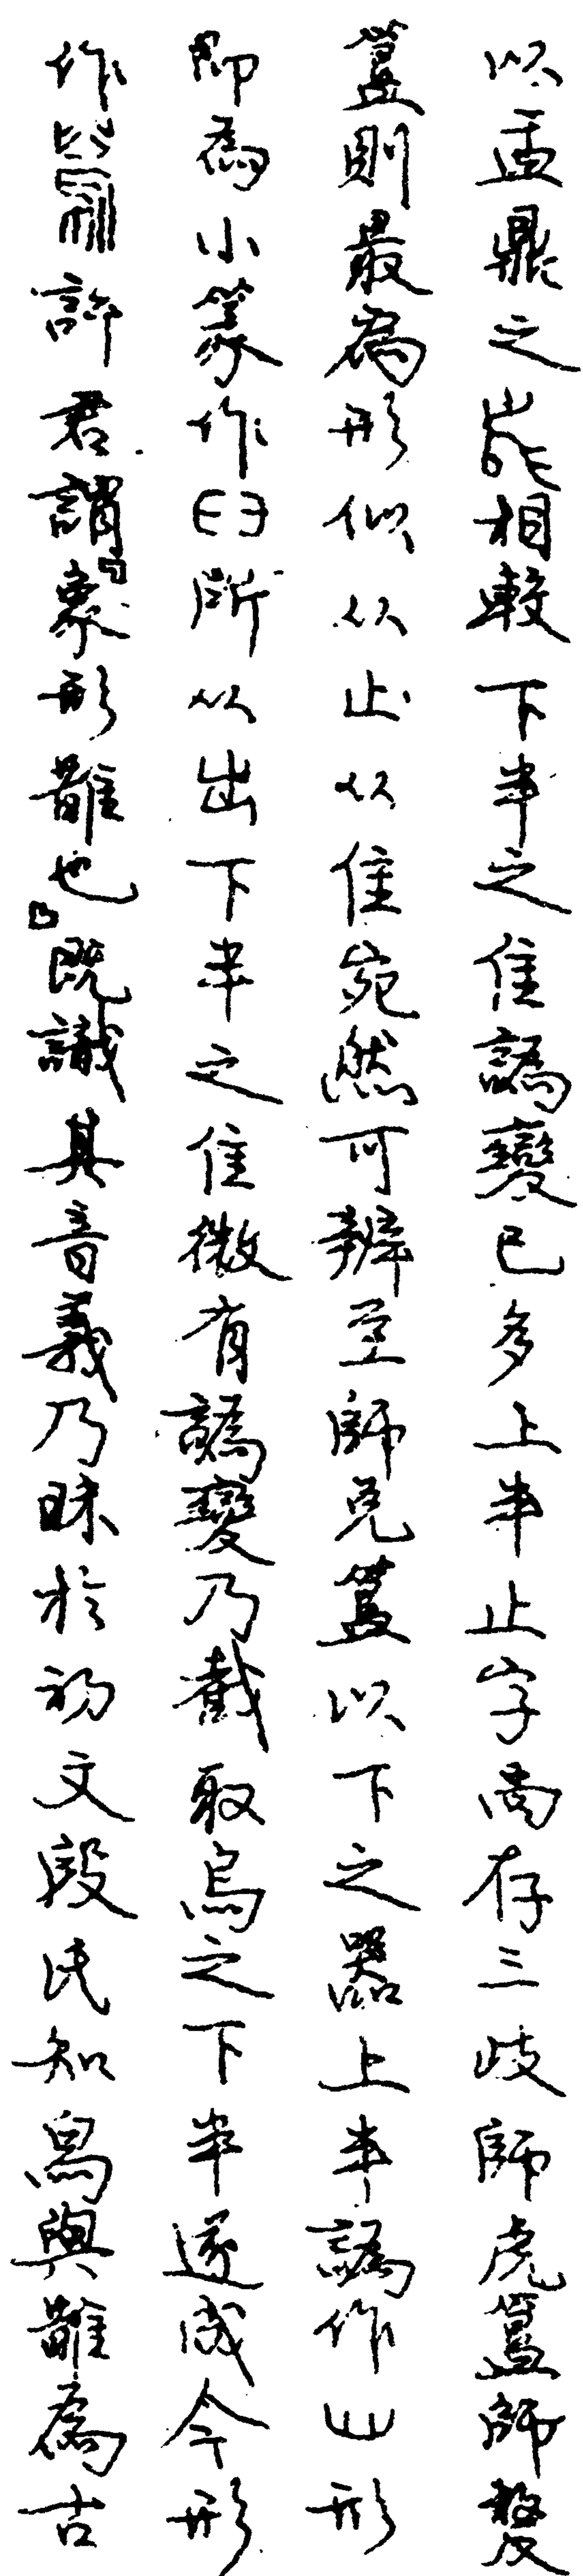 以盂鼎之[⿱山能]相較下半之隹譌變已多上半止字尚存三歧師虎簋師㝨
簋則最為形似从止从隹宛然可辨至師兌簋以下之器上半譌作山形
即為小篆作臼所以出下半之隹微有譌變乃截取烏之下半遂成今形
作許君謂「象形䧿也」既識其音義乃昧於初文段氏知舄與䧿為古